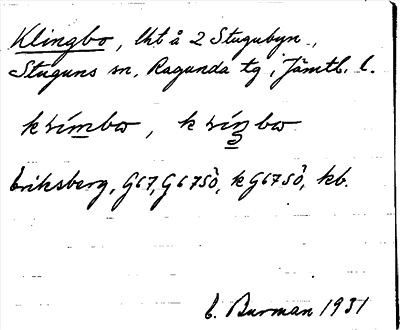 Klingbo, lht å 2 Stugubyn,
Stuguns sn, Ragunda tg i Jämtl. l.
Eriksberg, G67, G67SÖ, k G67SÖ, kb.
E. Burman 1931